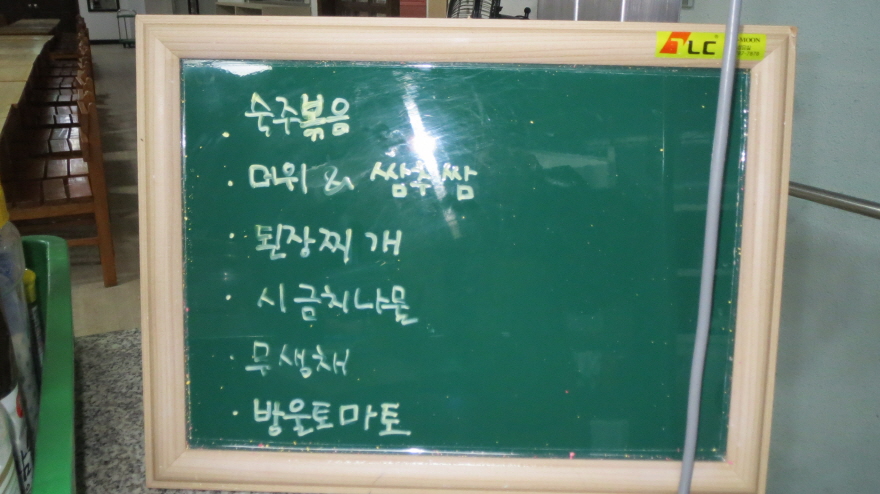 TLC
MOON
· 숙주볶음
· 머위 & 쌈추쌈
· 된장찌개
· 시금치나물
· 무생채
· 방울토마토